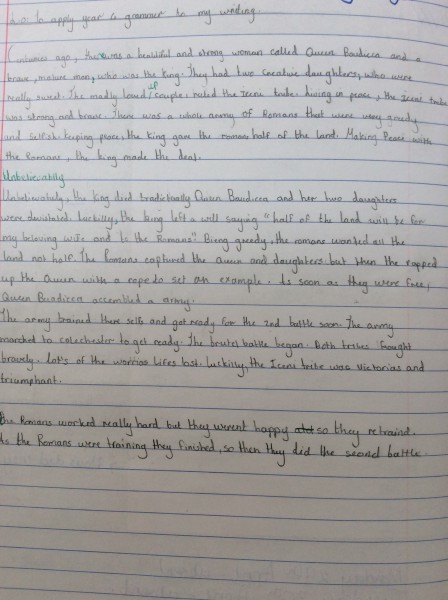 L.O: to apply year 6 grammer to my writing.
Centuries ago, there was a beautiful and strong woman called Queen Boudicca and a
brave, mature man, who was the king. They had two creative daughters, who were
really sweet. The madly loved up couple ruled the Iceni tribe. Living in peace, the Iceni tribe
was strong and brave. There was a whole army of Romans that were very greedy
and selfish. keeping peace, the king gave the romans half of the land. Making Peace with
the Romans, the king made the deal.
Unbelievably
Unbelivabely, the king died tradictually Queen Boudicca and her two daughters
were devistated. luckilly, the king left a will saying "half of the land will be for
my beloving wife and to the Romans". Bieng greedy, the romans wanted all the
land not half. The Romans captured the Queen and daughters but then the rapped
up the Queen with a rope to set an example. As soon as they were free,
Queen Boudicca accembled a army.
The army trained there selfs and got ready for the 2nd battle soon. The army
marched to colechester to get ready. The brutal battle began. Both tribes fought
bravely. Lot's of the worrios lifes lost. luckilly, the Iceni tribe was Victorias and
triumphant.
The Romans worked really hard but they werent happy so they retraind.
As the Romans were training they finished, so then they did the second battle.